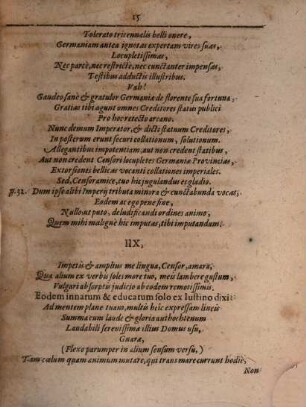 15
Tolerato tricennalis belli onere,
Germaniam antea ignotas expertam vires suas,
Locupletissimas,
Nec parcè, nec restrictè, nec cunctanter impensas,
Testibus adductis illustribus.
Vah!
Gaudeo sanè & gratulor Germaniæ de florente sua fortuna,
Gratias tibi agunt omnes Creditores status publici
Pro hoc retecto arcano.
Nunc demum Imperator, & dicti statuum Creditores,
In posterum erunt securi collationum, solutionum.
Allegantibus impotentiam aut non credent statibus,
Aut non credent Censori locupletes Germaniæ Provincias,
Extorsionis bellicas vocanti collationes imperiales.
Sed, Censor amice, tuo hic jugulandus es gladio.
p. 32. Dum ipse alibi Imperij tributa minora & cunctabunda vocat,
Eadem ac ego pene sine,
Nullo ut puto, deludificandi ordines animo,
Quem mihi malignè hic imputas, tibi imputandum.
IIX,
Impetis & amplius me lingua, Censor, amaro,
Qua alium ex verbis soles more tuo, meis lambere gustum,
Vulgari absorptis judicio ab eodem remotissimis,
Eodem innatum & educatum solo ex Iustino dixi:
Ad mentem plane tuam, multis hic expressam lineis
Summorum laude & gloria authochtonum
Laudabili serenissimæ illius Domus usu,
Gnaræ,
(Flexo parumper in alium sensum versu,)
Tam cœlum quam animum mutare, qui trans mare currunt hodie,
Non